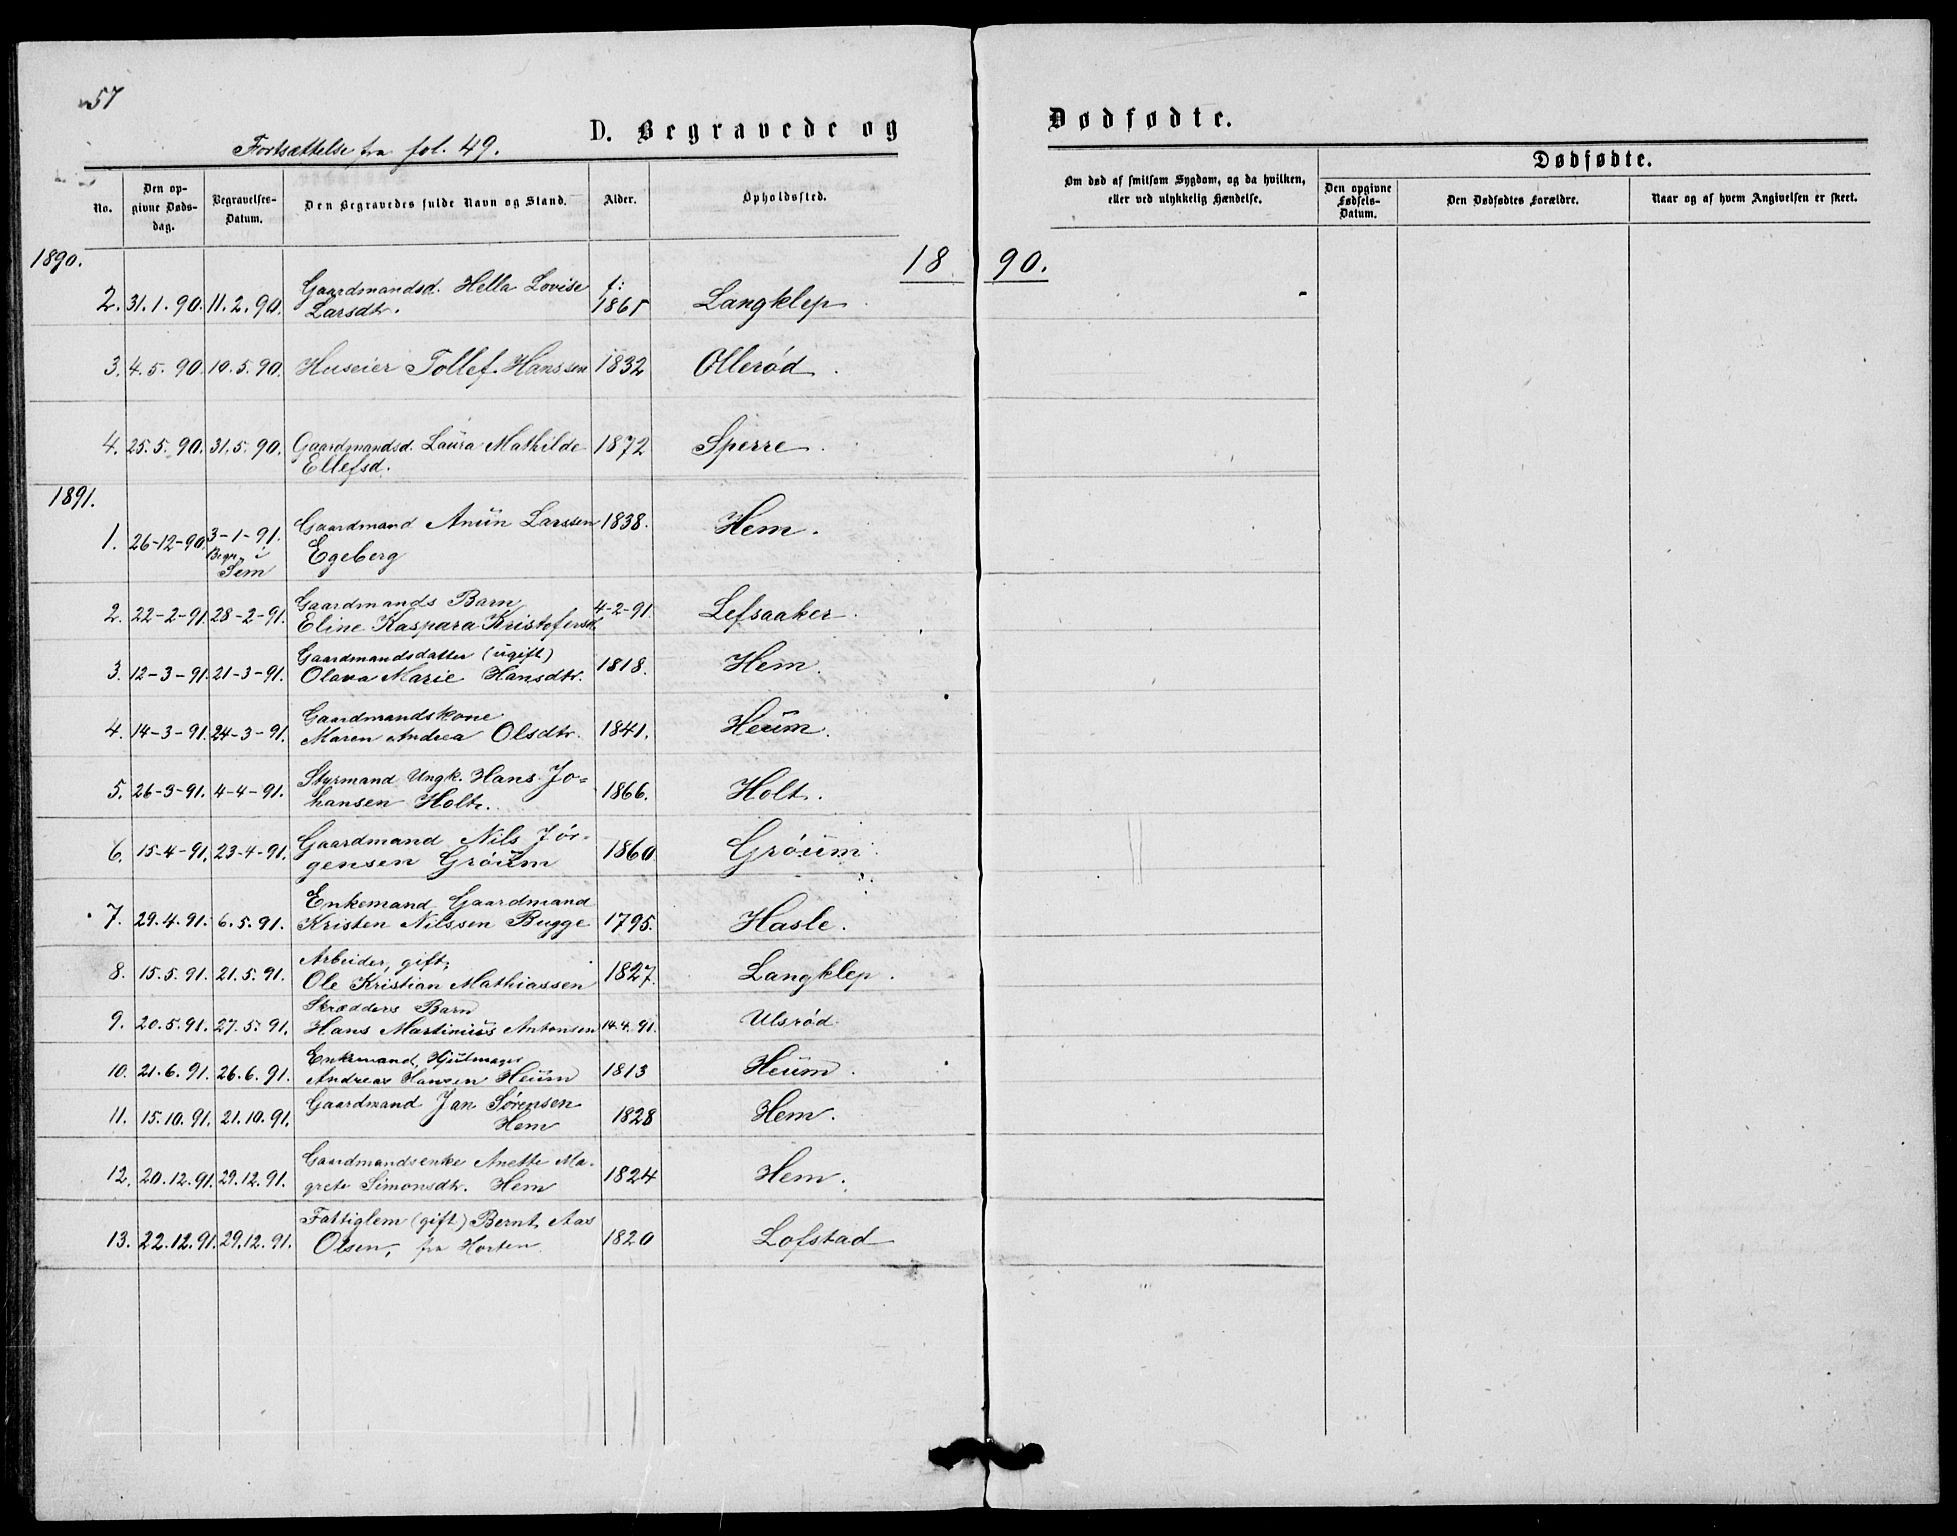 57
D. Begravede og Dødfødte.
Fortsættelse fra fol. 49.
No.
Den opgivne Dødsdag.
Begravelses-Datum.
Den Begravedes fulde Navn og Stand.
Alder.
Opholdssted.
Om død af smitsom Sygdom, og da hvilken,
eller ved ulykkelig Hændelse.
Dødfødte.
Den opgivne Fødsels-Datum.
Den Dødfødtes Forældre.
Naar og af hvem Angivelsen er skeet.
1890.
18 90.
2. 31.1.90. 11.2.90. Gaardmandsd. Hella Lovise f: 1865 Langklep
Larsdtr.
3. 4.5.90 10.5.90. Huseier Tollef Hanssen 1832 Ollerød
4. 25.5.90. 31.5.90. Gaardmandsd. Laura Mathilde 1872 Sperre
Ellefsd.
1891.
1. 26-12-90 3-1-91. Gaardmand Anun Larssen 1838. Hem.
Begr. i Sem Egeberg
2. 22-2-91. 28-2-91. Gaardmands Barn 4-2-91. Lefsaaker
Eline Kaspara Kristofersd.
3. 12-3-91. 21-3-91. Gaardmandsdatter (ugift) 1818. Hem.
Olava Marie Hansdtr.
4. 14-3-91. 24-3-91. Gaardmandskone 1841. Heum.
Maren Andrea Olsdtr.
5. 26-3-91. 4-4-91. Styrmand Ungk. Hans Jo= 1866. Holt.
hansen Holt.
6. 15-4-91. 23-4-91. Gaardmand Nils Jør- 1860 Grøum
gensen Grøum
7. 29.4.91. 6.5.91. Enkemand Gaardmand 1795. Hasle.
Kristen Nilssen Bugge
8. 15.5.91. 21.5.91. Arbeider, gift, 1827. Langklep.
Ole Kristian Mathiassen
9. 20.5.91. 27.5.91. Skrædders Barn 14.4.91. Ulsrød
Hans Martinius Antonsen
10. 21.6.91. 26.6.91. Enkemand, Hjulmager 1813 Heum.
Andreas Hansen Heum
11. 15.10.91. 21.10.91. Gaardmand Jan Sørensen 1828 Hem.
Hem
12. 20.12.91. 29.12.91. Gaardmandsenke Anette Ma- 1824 Hem.
grete Simonsdtr. Hem
13. 22.12.91. 29.12.91. Fattiglem (gift) Bernt Aas 1820 Lofstad
Olsen, fra Horten.